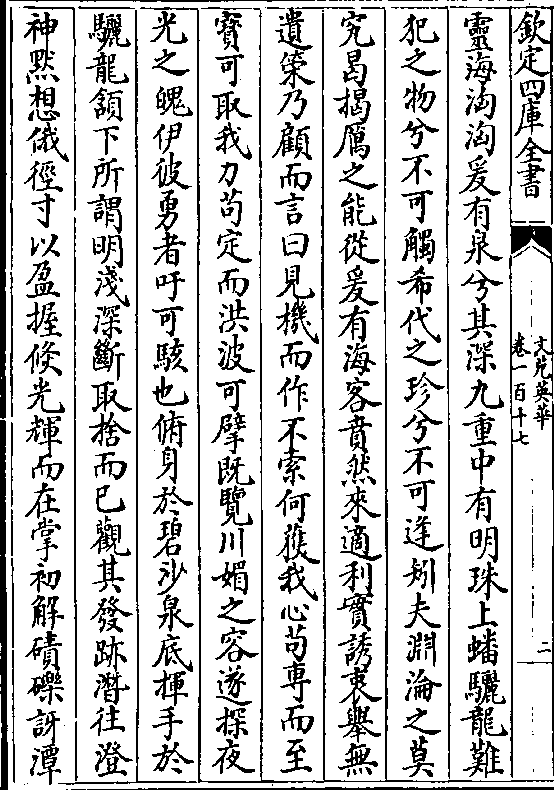 欽定四庫全書
文苑英華
卷一百十七
二
靈海淘淘爰有泉兮其深九重中有明珠上蟠驪龍難
犯之物兮不可觸希代之珍兮不可逢矧夫淵淪之莫
究曷揭厲之能從爰有海客賁然來適利實誘衷舉無
遺筞乃顧而言曰見機而作不索何獲我心苟專而至
寳可取我力苟定而洪波可擘既覽川媚之容遂探夜
光之魄伊彼勇者吁可駭也俯身於碧沙泉底揮手於
驪龍頷下所謂明淺深斷取捨而已觀其發跡潛往澄
神黙想俄徑寸以盈握倐光輝而在掌初解磧礫訝潭